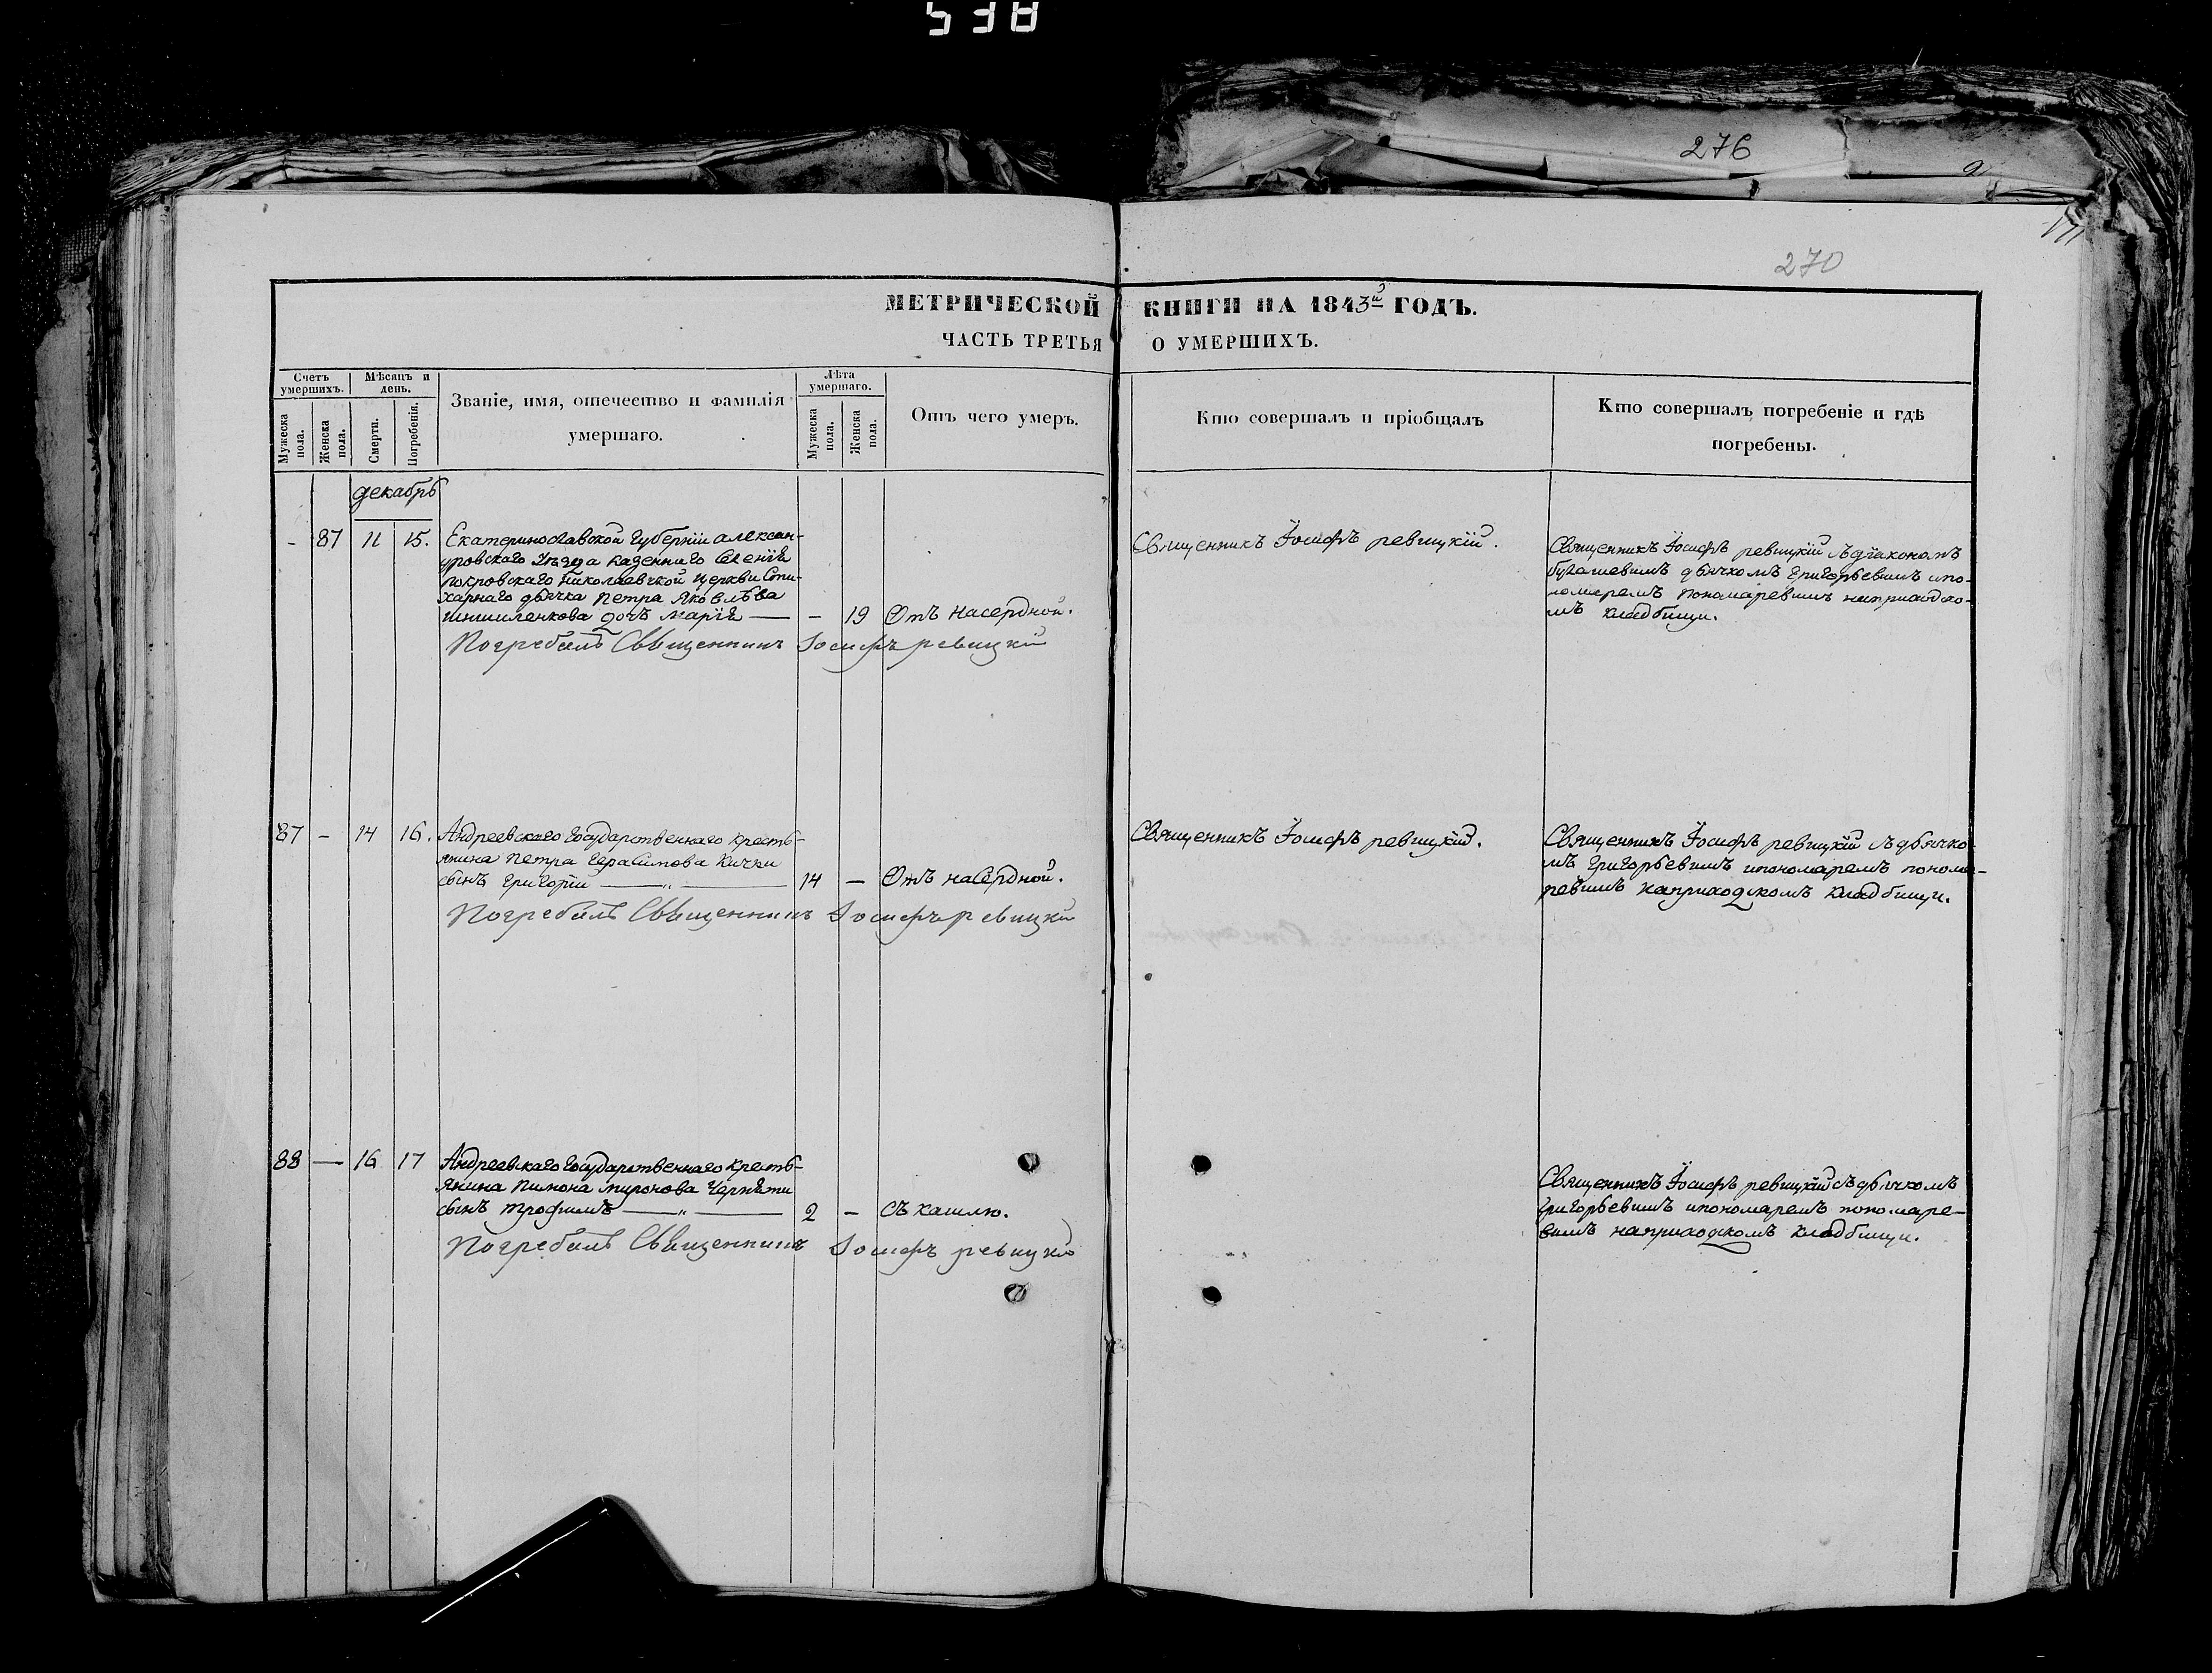 538
276
270
МЕТРИЧЕСКОЙ КНИГИ НА 1843й ГОДЪ.
ЧАСТЬ ТРЕТЬЯ О УМЕРШИХЪ.
Счетъ умершихъ.
Мѣсяцъ и день.
Званіе, имя, отечество и фамилія
умершаго.
Лѣта умершаго.
Отъ чего умеръ.
Кто совершалъ и пріобщалъ
Кто совершалъ погребеніе и гдѣ
погребены.
Мужеска пола.
Женска пола.
Смерти.
Погребенія.
Мужеска пола.
Женска пола.
декабрь
- 87 11 15. Екатеринославской Губерніи Алексан-
дровскаго Уѣзда Казеннаго Селенія
Покровскаго Николаевской Церкви Сти-
харнаго дьячка Петра Яковлѣва
дочь Марія — - 19 Отъ насердной.
Погребалъ Священникъ Іосифъ ревицкій
Священникъ Іосифъ ревицкій.
Священникъ Іосифъ ревицкій съ діакономъ
дьячкомъ Григорьевимъ ипо-
номаремъ Пономаревимъ наприходско-
мъ кладбищи.
87 - 14 16. Андреевскаго Государственнаго Кресть-
янина Петра Герасимова Кички
сынъ Григорій — „ — 14 - Отъ насердной.
Погребалъ Священникъ Іосифъ ревицкій
Священникъ Іосифъ ревицкій.
Священникъ Іосифъ ревицкій съ дьячко-
мъ Григорьевимъ ипономаремъ понома-
ревимъ наприходскомъ кладбищи.
88 — 16 17 Андреевскаго Государственнаго Кресть-
янина Пимона Миронова
сынъ Трофимъ — „ — 2 - Съ кашлю.
Погребалъ Священникъ Іосифъ ревицкій
Священникъ Іосифъ ревицкій съ дьячкомъ
Григорьевимъ ипономаремъ пономаре-
вимъ наприходскомъ кладбищи.